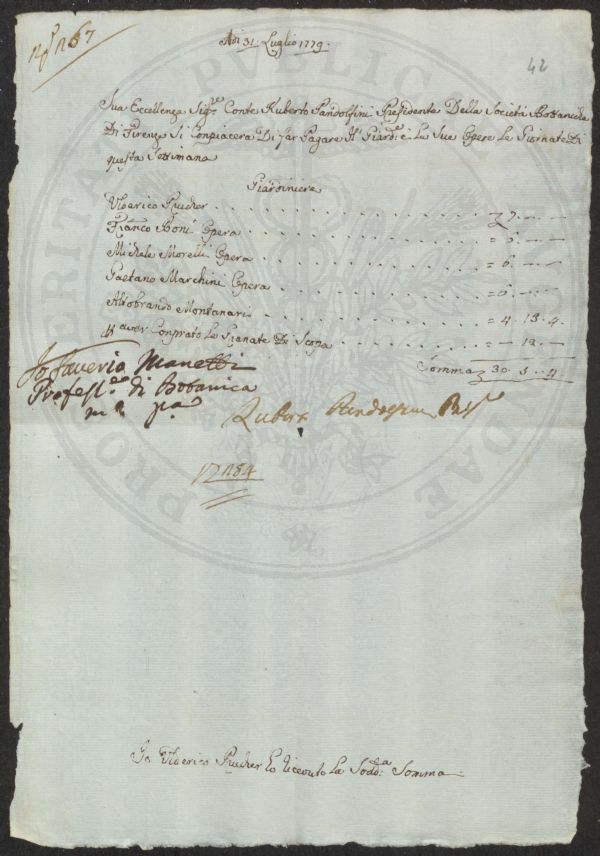 42
Adi 31. Luglio 1779.
Sua Eccellenza Sig.re Conte Ruberto Pandolfini Presidente Della Società Bottanicha
Di Firenze Si Conpiacera Di far Pagare Al Giard.e e Le Sue Opere Le Giornate Di
questa Settimana
Giardiniere
Ulderico Prucher . . . 7. — —
Franco Boni Opera . . . = 6. — —
Michele Morelli Opera . . . = 6. — —
Gaetano Marchini Opera . . . = 6. — —
Aldobrando Montanari . . . = 4. 13. 4
aver Conprato Le Granate Di Scopa . . . = — 12. —
Somma 30. 5. 4
Io Saverio Manetti
Profess.re di Botanica
m. p.a
Ruberto Pandolfini
Io Ulderico Prucher ho ricevuto La Sodd.a Somma
PROSPERITATI PUBLICAE